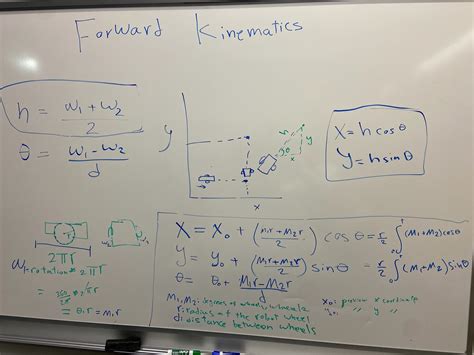 Forward Kinematics
h = (w₁ + w₂)/2
θ = (w₁ - w₂)/d
y
x
h
θ
y
x
x = h cos θ
y = h sin θ
2πr
w₁ = rotation * 2πr
= θ₁r = M₁r
X = X₀ + (M₁r + M₂r / 2) cos θ = r/2 ∫ (M₁ + M₂) cos θ
y = y₀ + (M₁r + M₂r / 2) sin θ = r/2 ∫ (M₁ + M₂) sin θ
θ = θ₀ + (M₁r - M₂r)/d
M₁, M₂: degrees of wheel₁, wheel₂
r: radius of the robot wheel
d: distance between wheels
x₀: previous x coordinate
y₀: " " y "